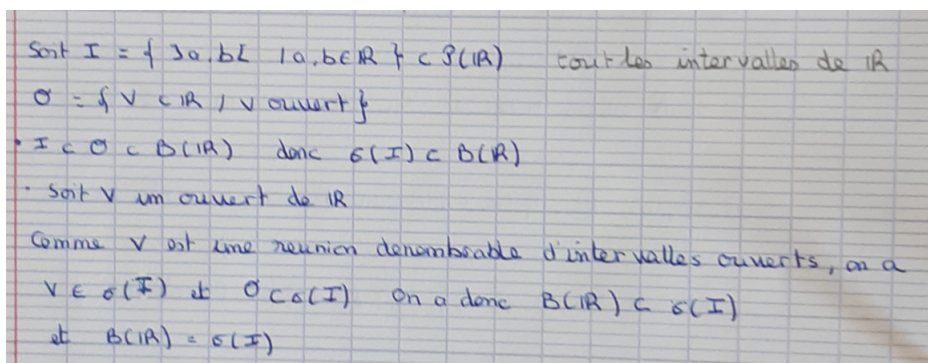 Soit I = { ]a,b[ / a,b ∈ ℝ } ⊂ P(ℝ) tout les intervalles de ℝ
O = { V ⊂ ℝ / V ouvert }
• I ⊂ O ⊂ B(ℝ) donc σ(I) ⊂ B(ℝ)
• Soit V un ouvert de ℝ
Comme V est une reunion denombrable d'intervalles ouverts, on a
V ∈ σ(I) et O ⊂ σ(I) On a donc B(ℝ) ⊂ σ(I)
et B(ℝ) = σ(I)